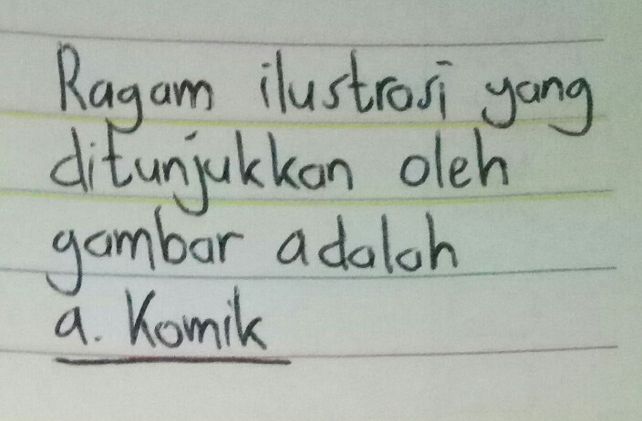 Ragam ilustrasi yang
ditunjukkan oleh
gambar adalah
a. Komik